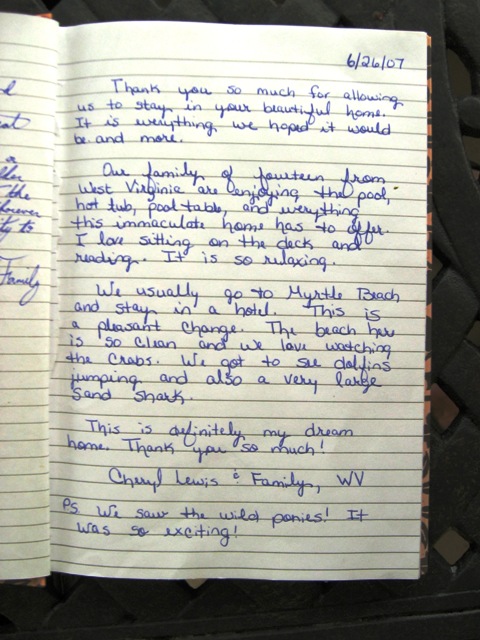 d
eat
a
the
however
ty to
Family
6/26/07
Thank you so much for allowing
us to stay in your beautiful home.
It is everything we hoped it would
be and more.
Our family of fourteen from
West Virginia are enjoying the pool,
hot tub, pool table, and everything
this immaculate home has to offer.
I love sitting on the deck and
reading. It is so relaxing.
We usually go to Myrtle Beach
and stay in a hotel. This is
a pleasant change. The beach here
is so clean and we love watching
the crabs. We got to see dolfins
jumping and also a very large
Sand Shark.
This is definitely my dream
home. Thank you so much!
Cheryl Lewis & Family, WV
Ps. We saw the wild ponies! It
was so exciting!